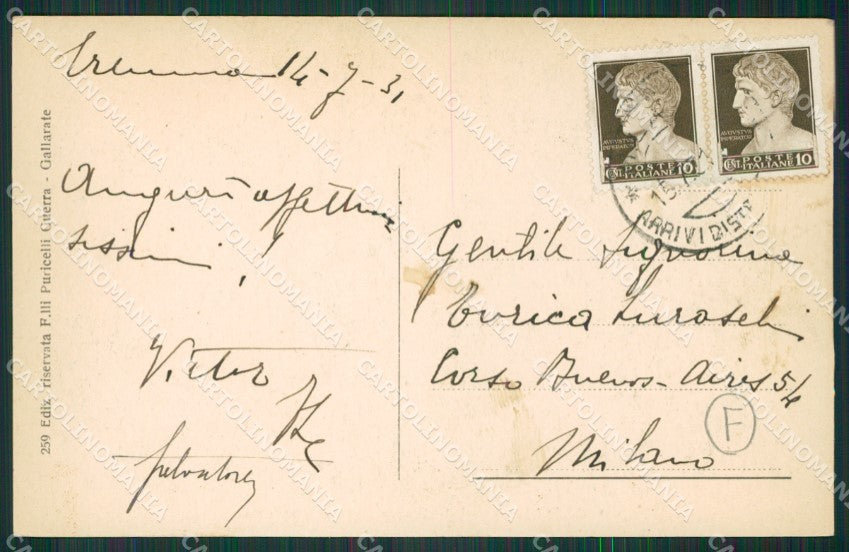 14-7-31
Auguri affettuo
sissimi!
Victor
Salvatore
Gentile Signorina
Enrica Luraschi
Corso Buenos-Aires 54
Milano
F
259 Ediz. riservata F.lli Puricelli Guerra - Gallarate
AVGVSTVS
IMPERATOR
CENT. POSTE 10
ITALIANE
AVGVSTVS
IMPERATOR
CENT. POSTE 10
ITALIANE
ARRIVI DIST
CARTOLINOMANIA